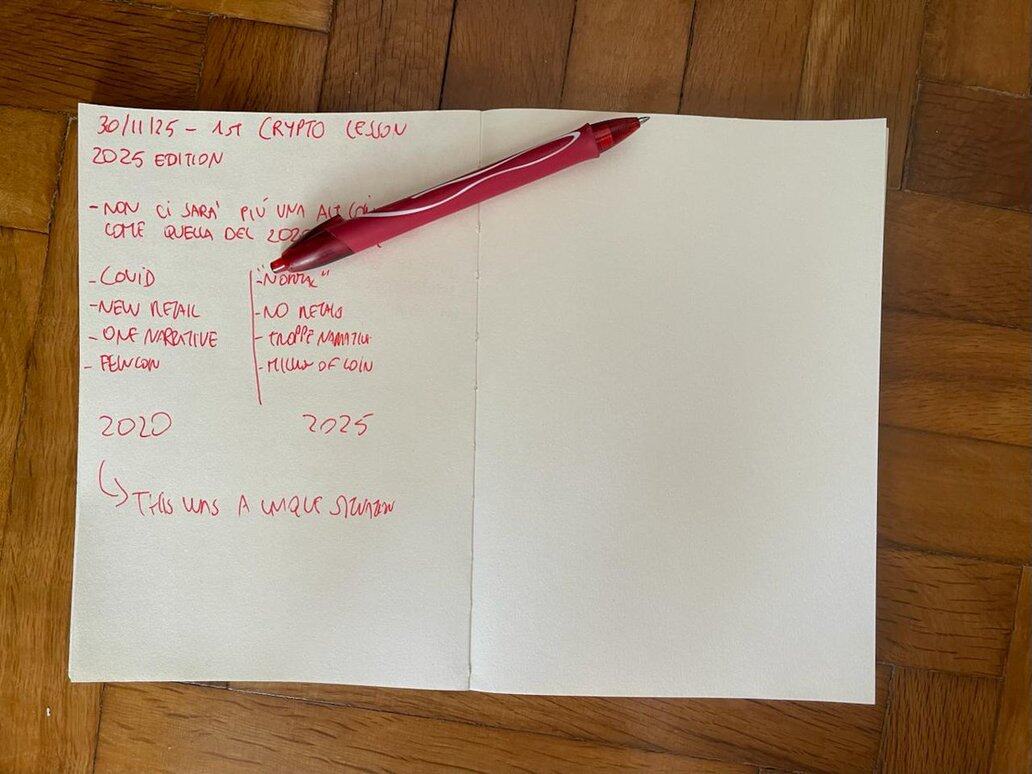 30/11/25 - 1ST CRYPTO LESSON
2025 EDITION
- NON CI SARÀ PIÙ UNA ALT
COME QUELLA DEL
- COVID
- NEW RETAIL
- ONE NARRATIVE
2020
- NO RETAIL
- TROPPE NARRATIVE
- OF COIN
2025
THIS WAS A UNIQUE SITUATION